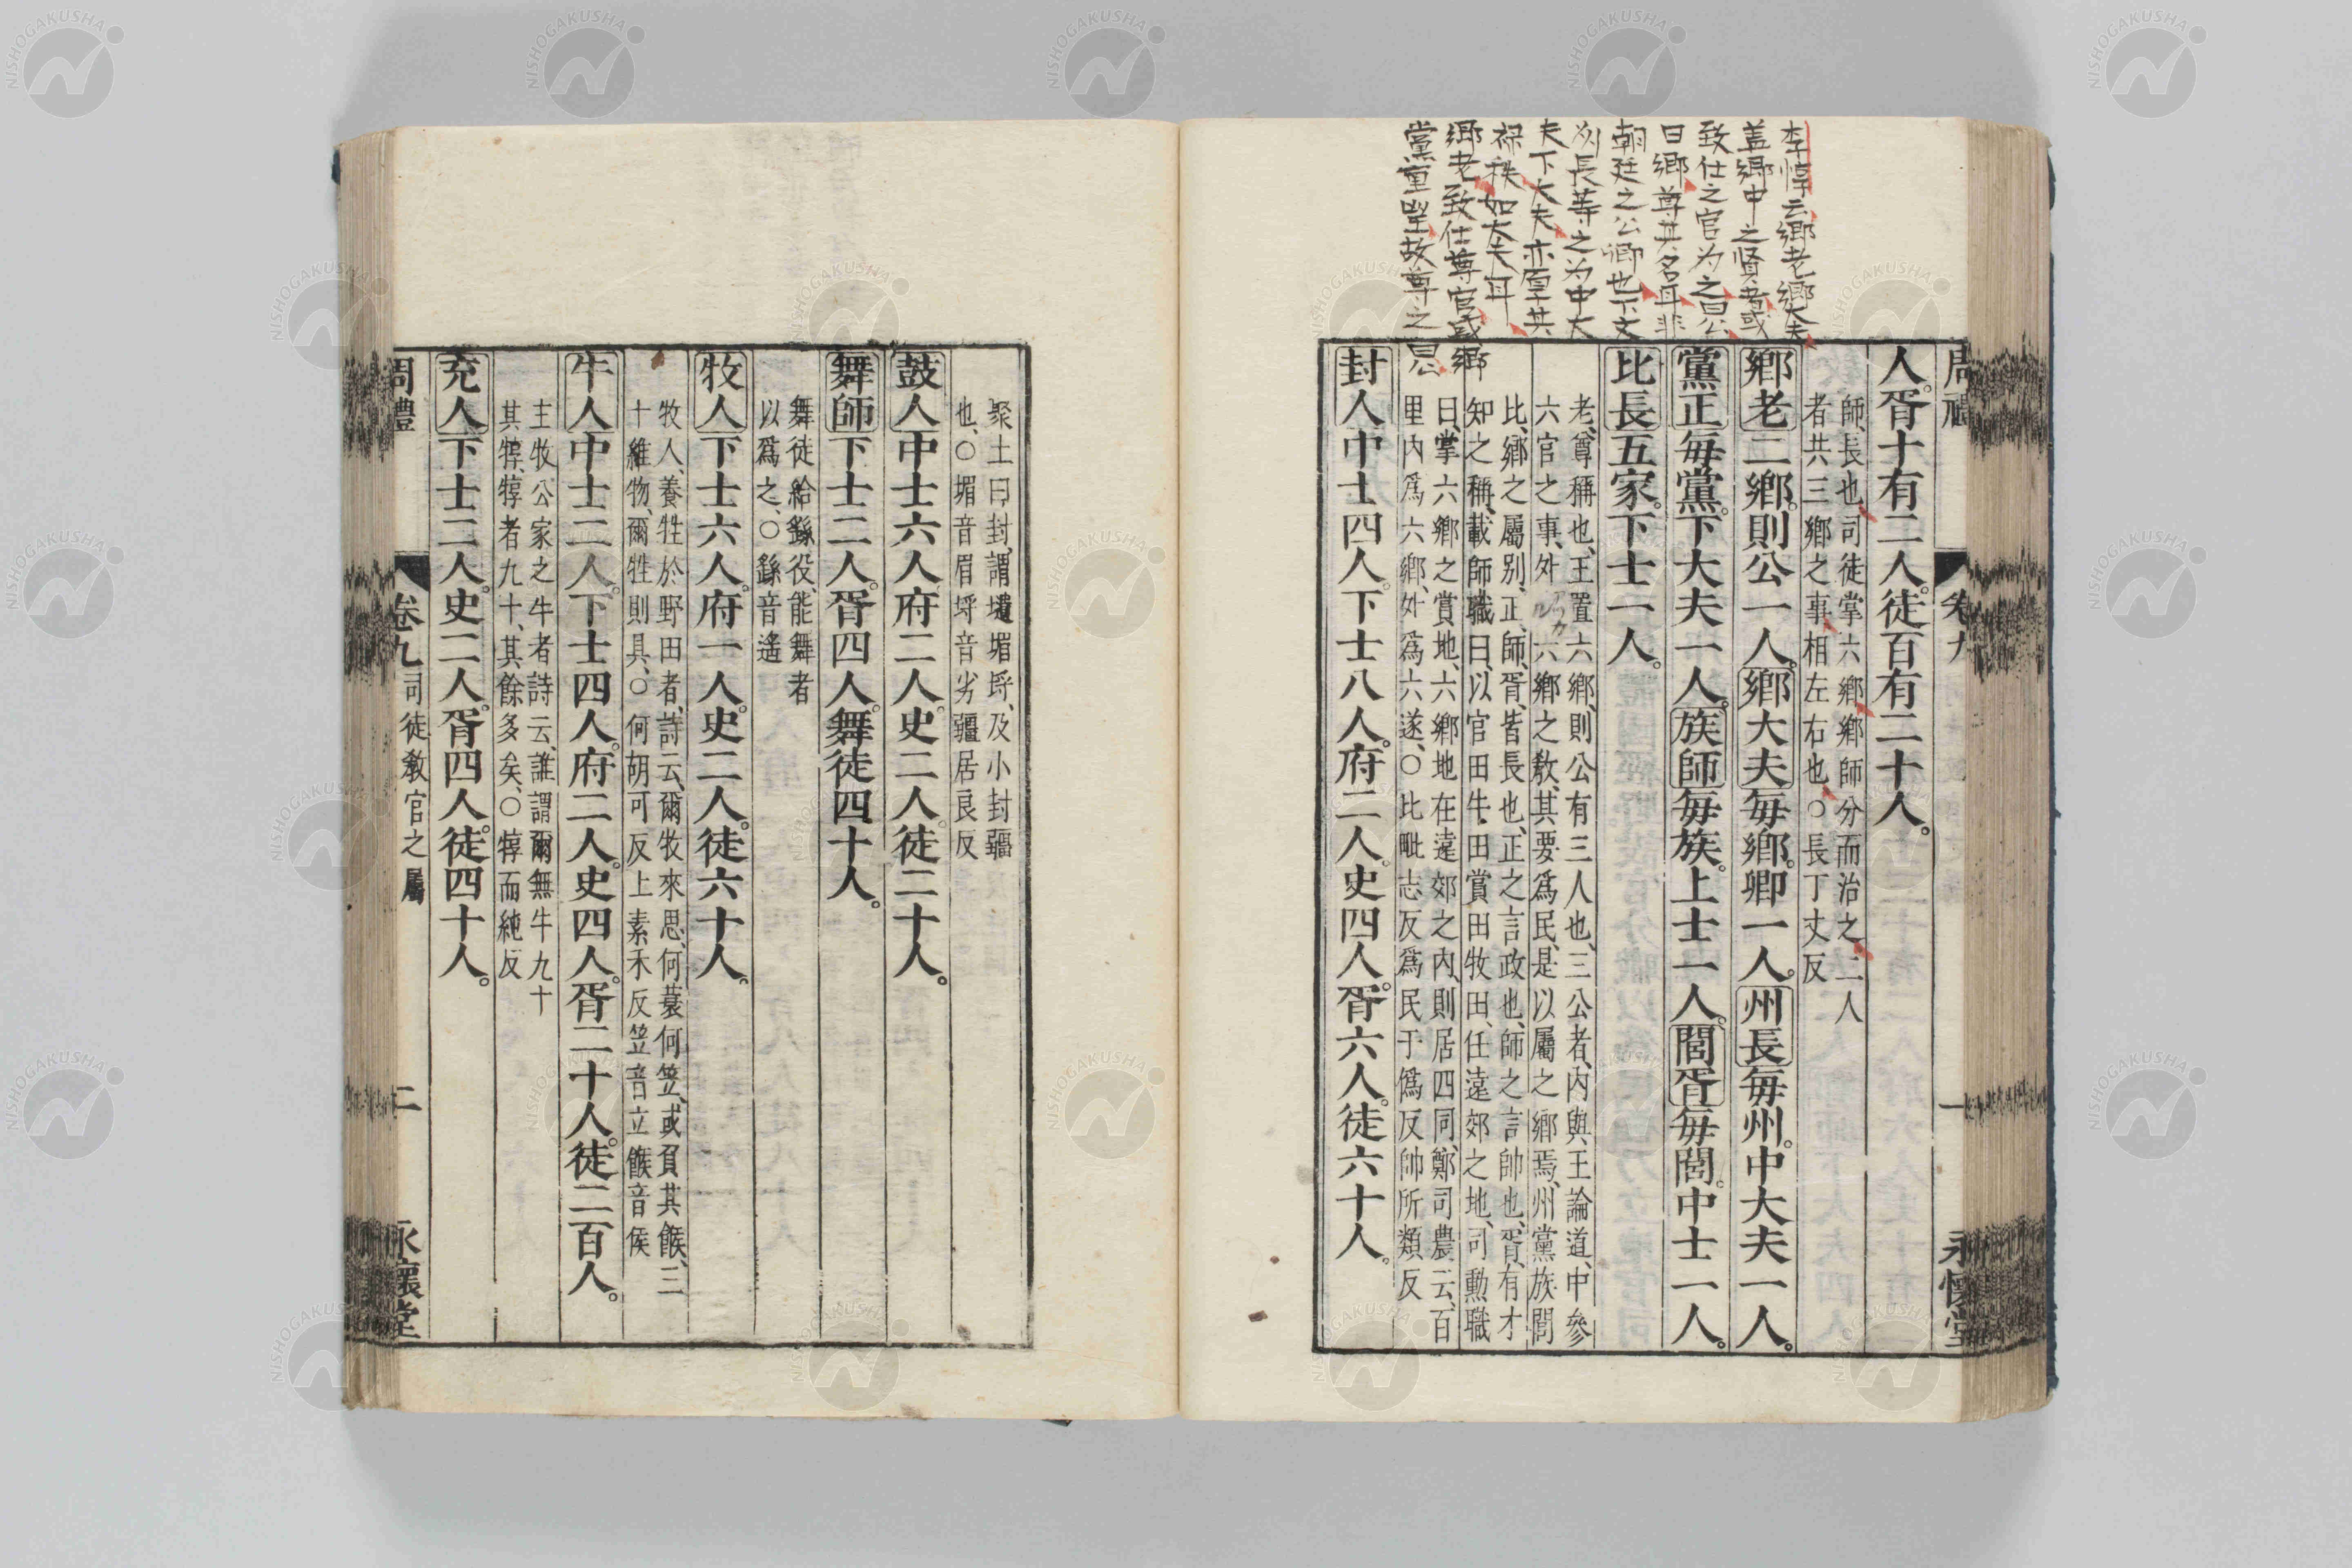 李惇云鄉老鄉大夫
蓋鄉中之賢者或
致仕之官为之畧
曰鄉尊其名耳非
朝廷之公卿也下文
州長等之为中大
夫下大夫亦厚其
禄秩如大夫耳
鄉老致仕尊官或鄉
黨重望故尊之畧
周禮
卷九
一
永懷堂
人胥十有二人。徒百有二十人。
師、長也、司徒掌六鄉、鄉師分而治之、二人
者共三鄉之事、相左右也、〇長丁丈反
鄉老二鄉。則公一人。鄉大夫每鄉。卿一人。州長每州。中大夫一人。
黨正每黨。下大夫一人。族師每族。上士一人。閭胥每閭。中士一人。
比長五家。下士一人。
老、尊稱也、王置六鄉、則公有三人也、三公者、內與王論道、中參
六官之事、外與六鄉之敎、其要爲民、是以屬之鄉焉、州黨族閭
比、鄉之屬別、正、師、胥、皆長也、正之言政也、師之言帥也、胥、有才
知之稱、載師職曰、以官田牛田賞田牧田、任遠郊之地、司勳職
曰、掌六鄉之賞地、六鄉地在遠郊之內、則居四同、鄭司農云、百
里內爲六鄉、外爲六遂、〇比毗志反爲民于僞反帥所類反
封人中士四人。下士八人。府二人。史四人。胥六人。徒六十人。
聚土曰封、謂壝堳埒、及小封疆
也、〇堳音眉埒音劣疆居良反
鼓人中士六人府二人。史二人。徒二十人。
舞師下士二人。胥四人。舞徒四十人。
舞徒給繇役、能舞者
以爲之、〇繇音遙
牧人下士六人。府一人。史二人。徒六十人。
牧人、養牲於野田者、詩云、爾牧來思、何蓑何笠、或負其餱、三
十維物、爾牲則具、〇何胡可反上素禾反笠音立餱音侯
牛人中士二人。下士四人。府二人。史四人。胥二十人。徒二百人。
主牧公家之牛者、詩云、誰謂爾無牛、九十
其犉、犉者九十、其餘多矣、〇犉而純反
充人下士二人。史二人。胥四人。徒四十人。
周禮
卷九
司徒敎官之屬
二
永懷堂
NISHOGAKUSHA